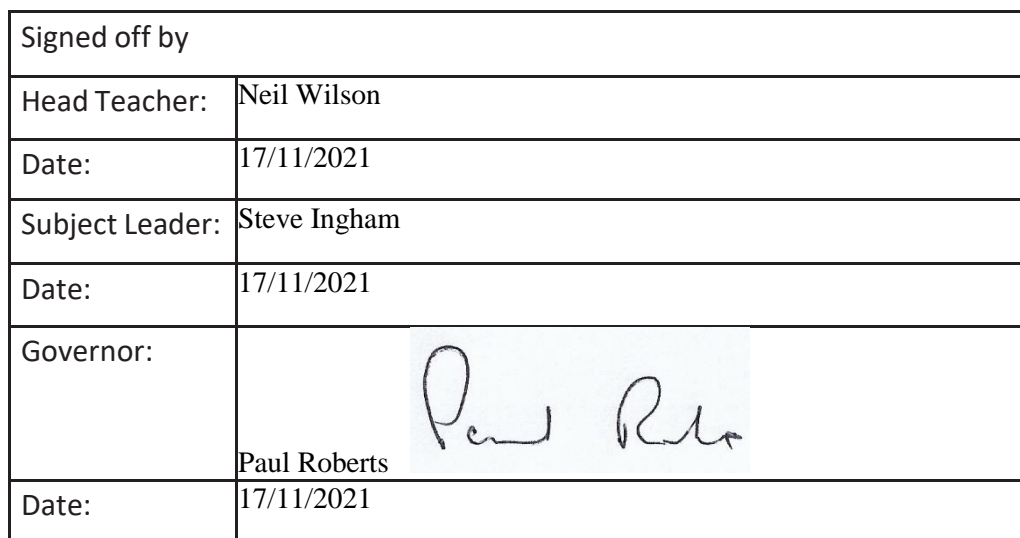 Signed off by
Head Teacher: Neil Wilson
Date: 17/11/2021
Subject Leader: Steve Ingham
Date: 17/11/2021
Governor:
Paul Roberts
Date: 17/11/2021